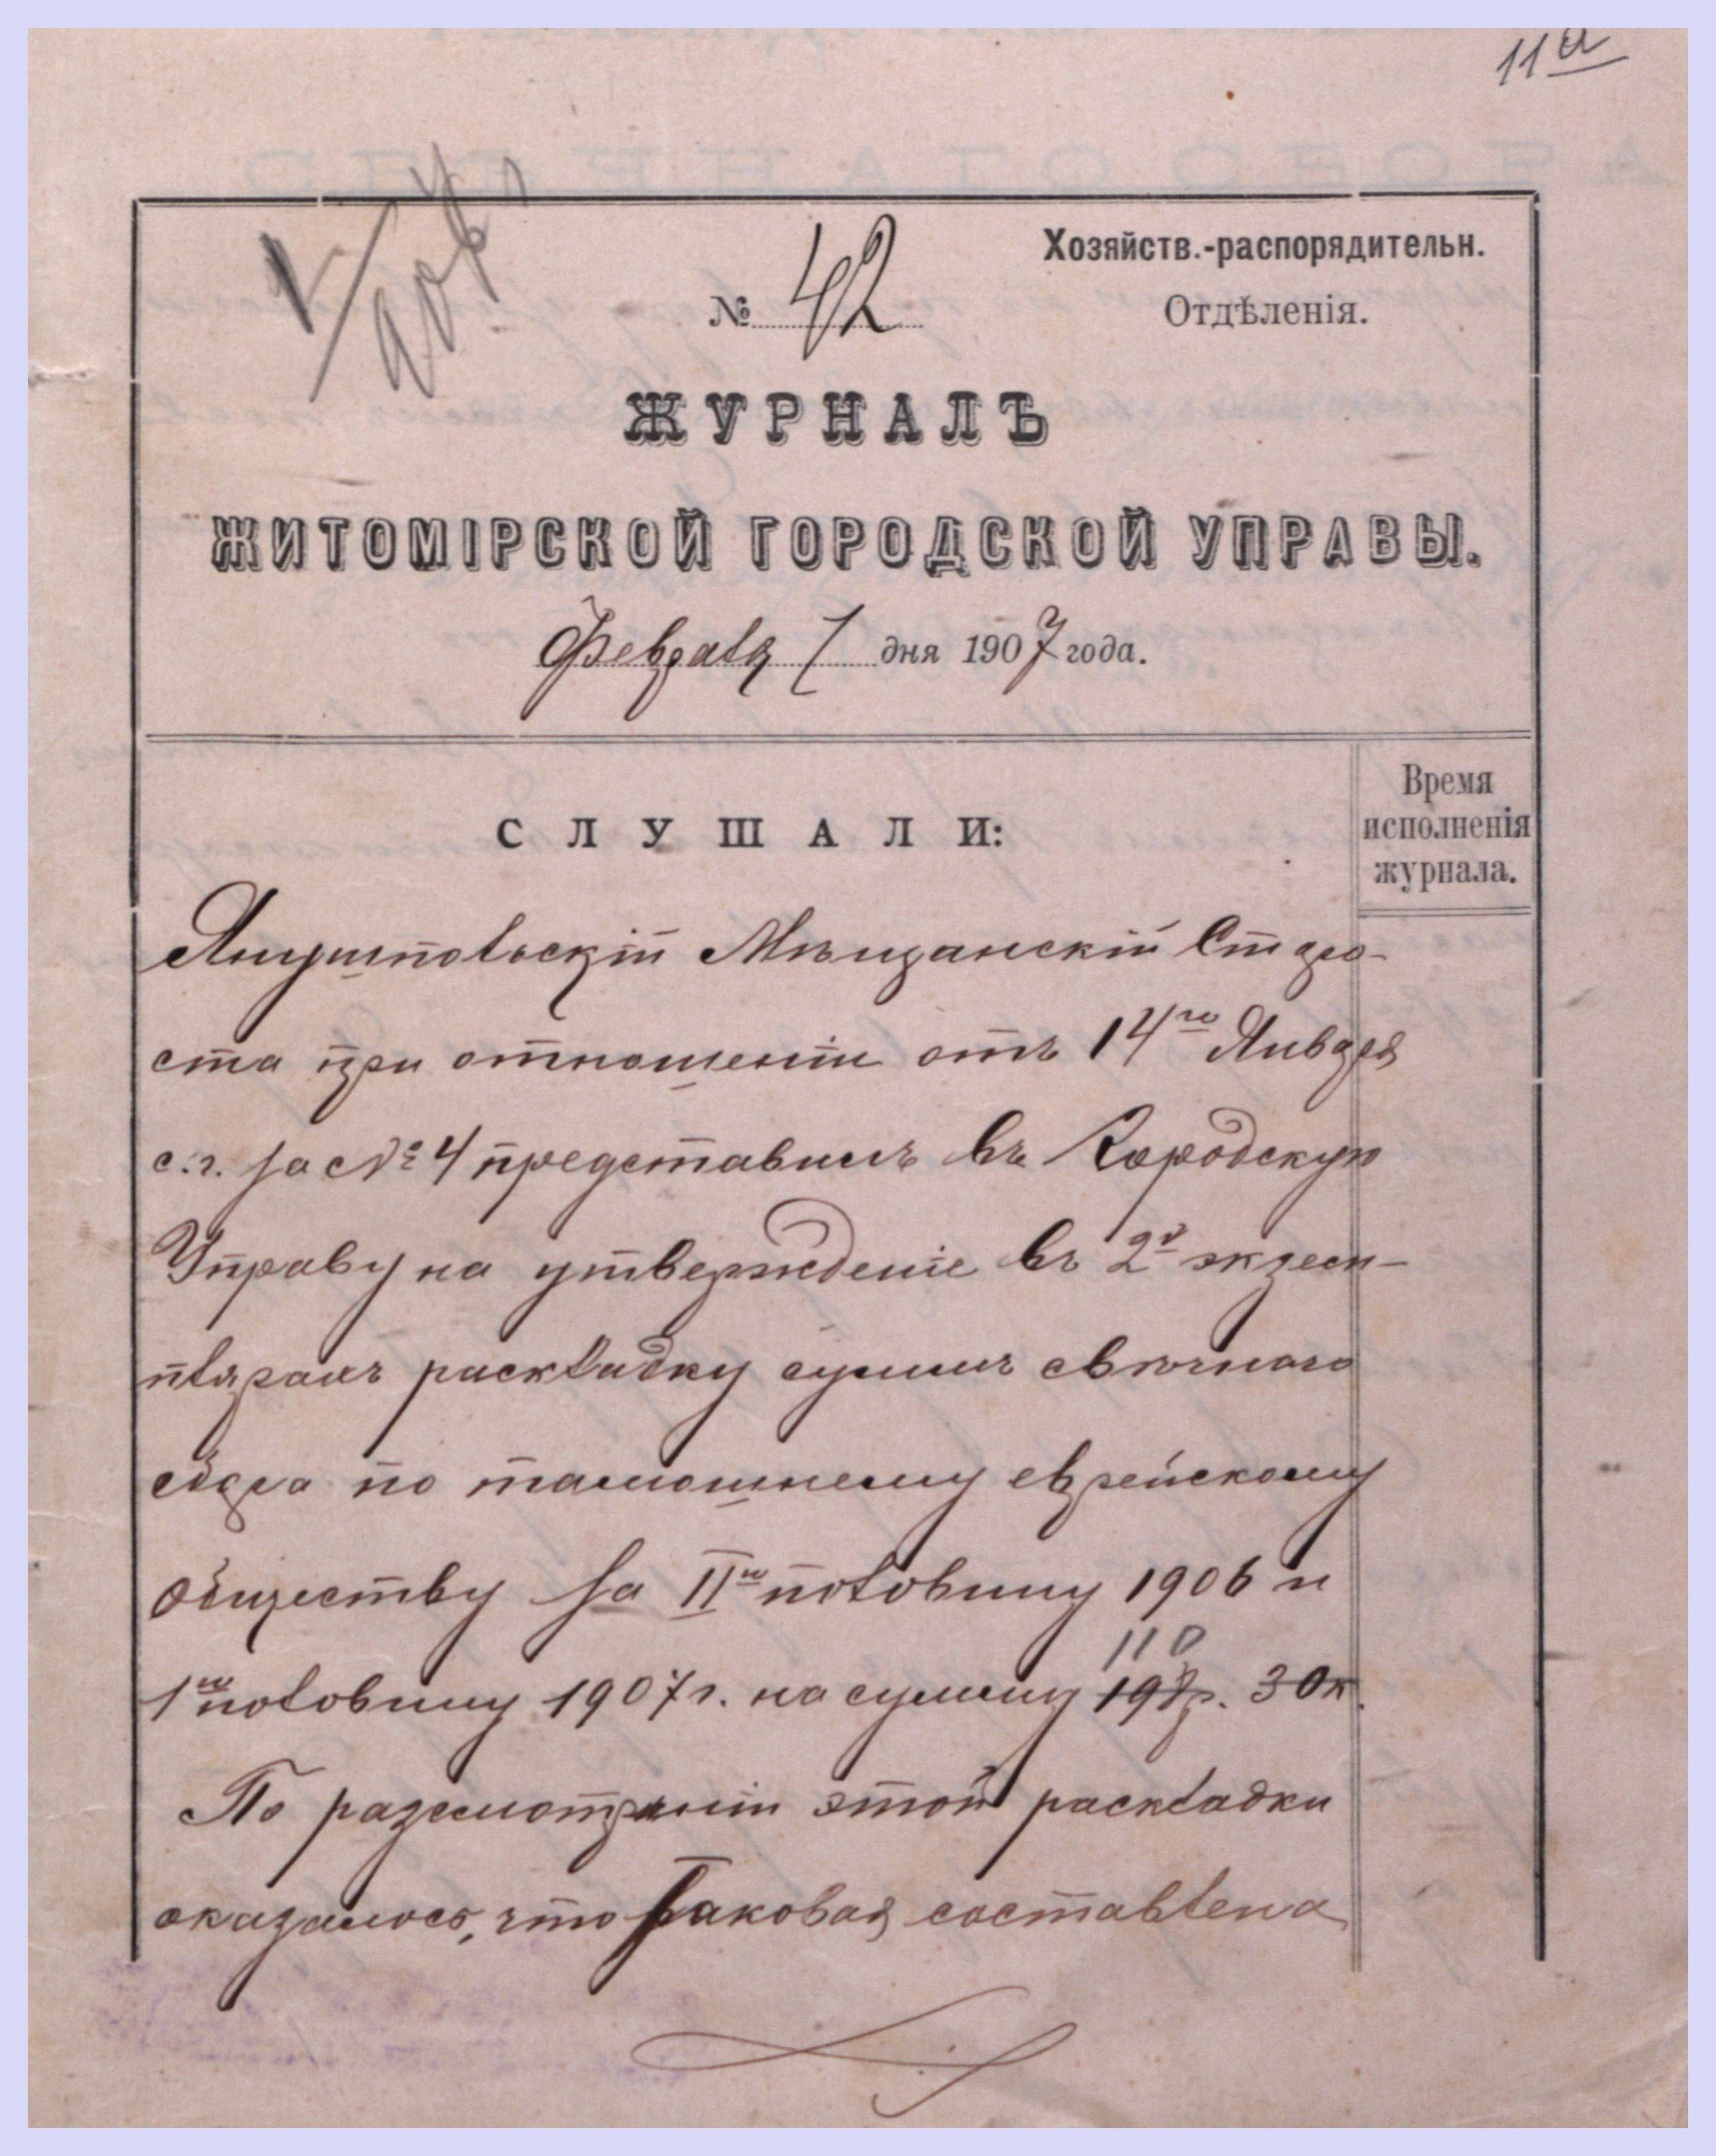 11а
№ 42
Хозяйств.-распорядительн.
Отдѣленія.
ЖУРНАЛЪ
ЖИТОМІРСКОЙ ГОРОДСКОЙ УПРАВЫ.
Февраля 7 дня 1907 года.
СЛУШАЛИ:
Время
исполненія
журнала.
Янушпольскій Мѣщанскій Старо-
ста при отношеніи отъ 14го Января
с.г. за № 4 представилъ въ Городскую
Управу на утвержденіе въ 2х экзем-
плярахъ раскладку суммъ свѣчнаго
сбора по тамошнему еврейскому
обществу за IIю половину 1906 и
1ю половину 1907 г. на сумму 110 р. 30 к.
По разсмотрѣніи этой раскладки
оказалось, что таковая составлена